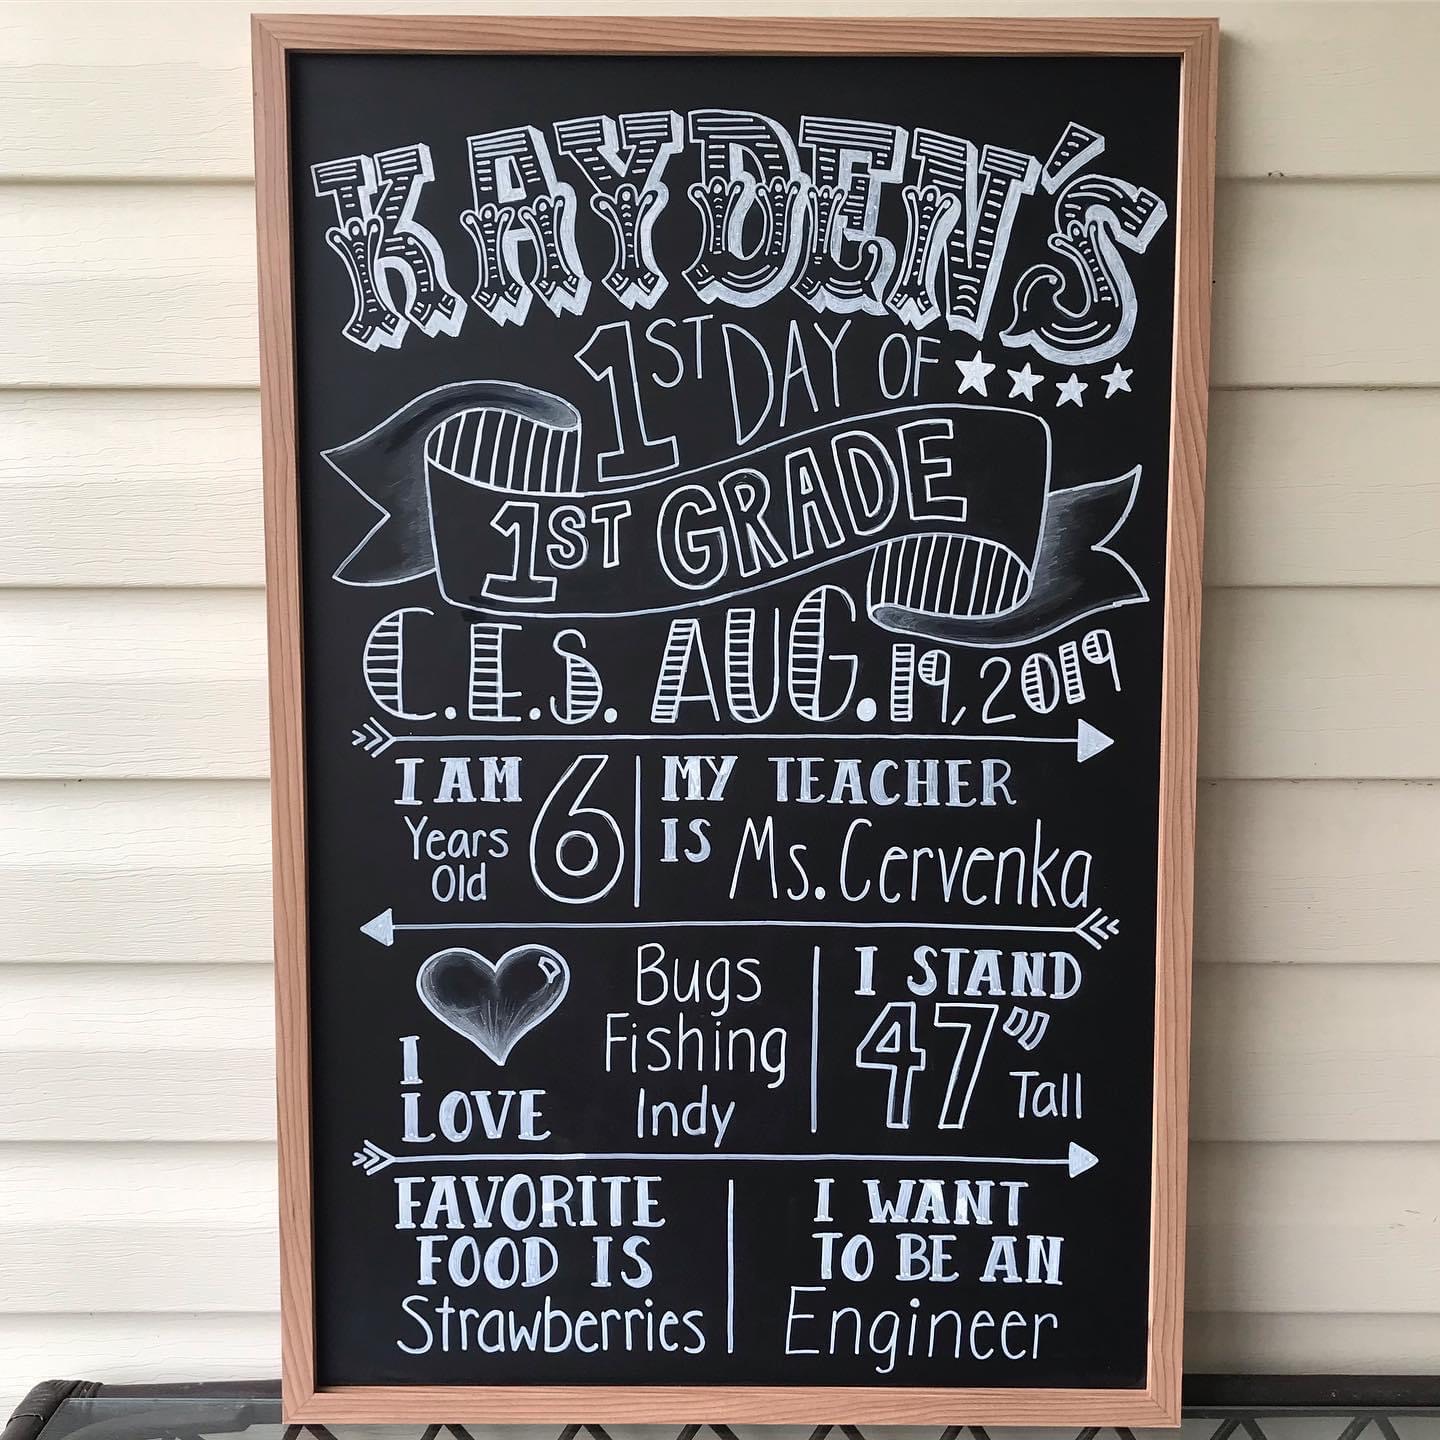 KAYDEN'S
1ST DAY OF
1ST GRADE
C.E.S. AUG. 19, 2019
I AM
Years
Old
6
MY TEACHER
IS Ms. Cervenka
I
LOVE
Bugs
Fishing
Indy
I STAND
47"
Tall
FAVORITE
FOOD IS
Strawberries
I WANT
TO BE AN
Engineer